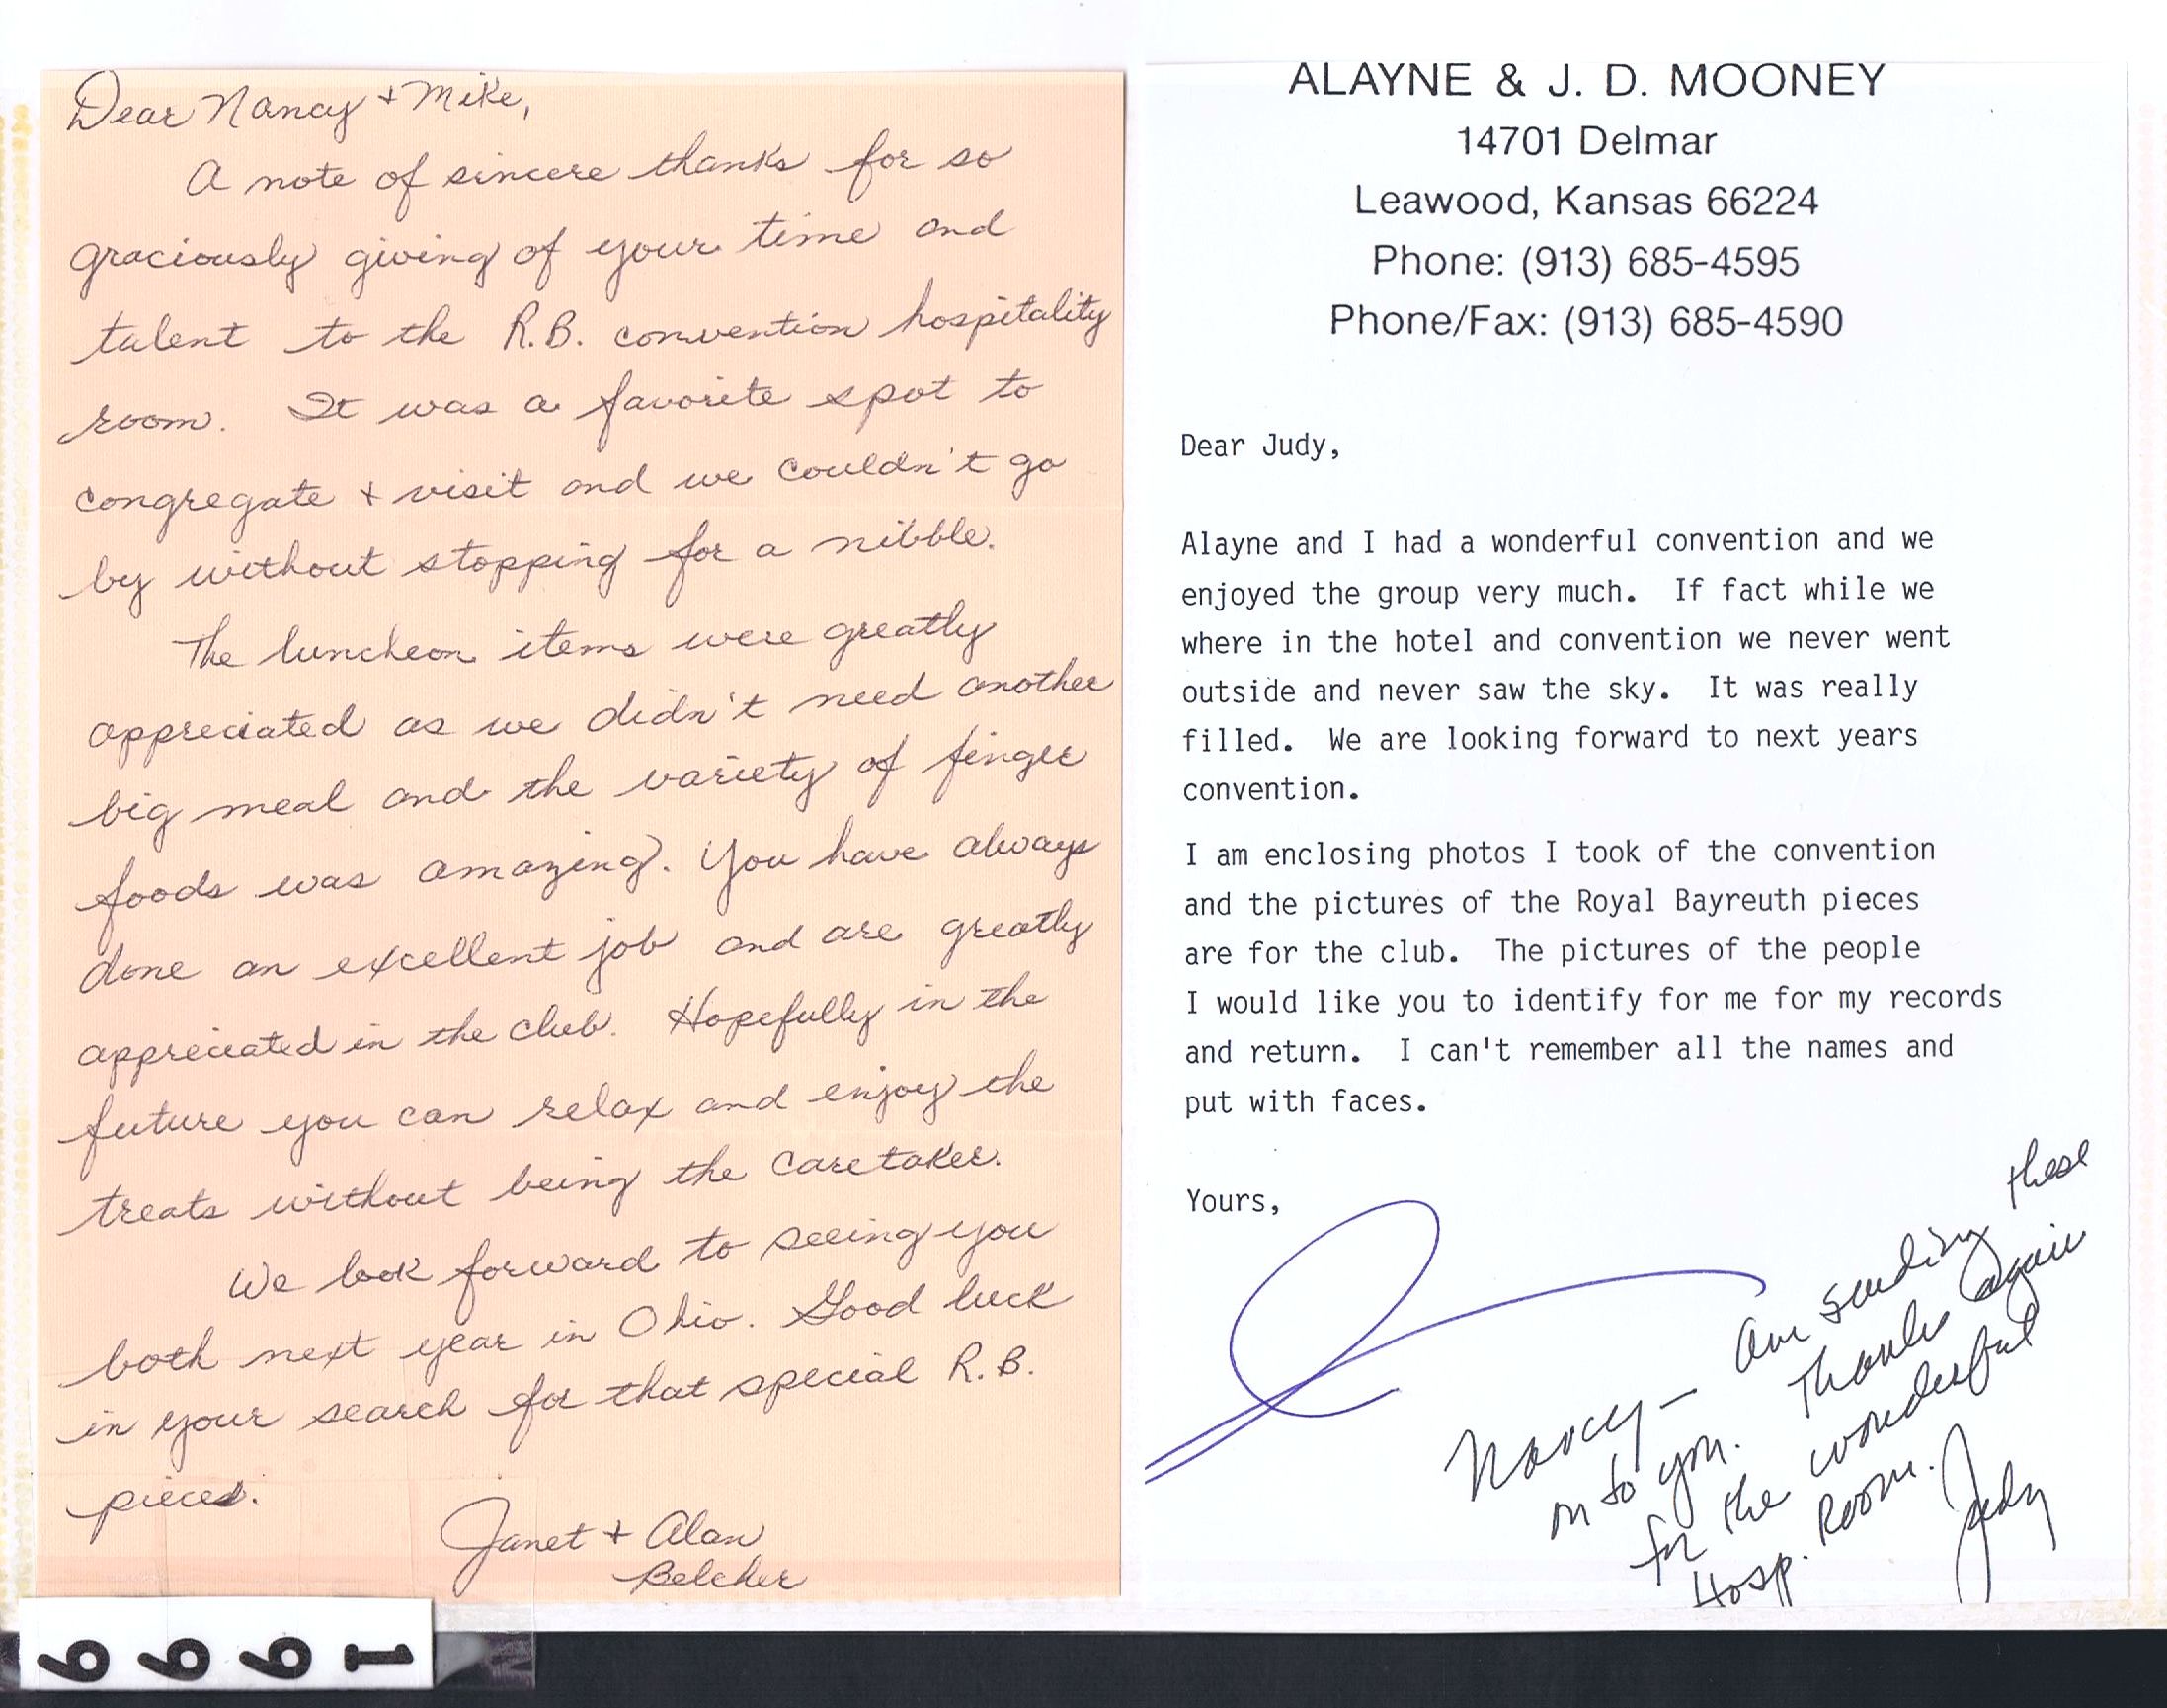 Dear Nancy + Mike,
A note of sincere thanks for so
graciously giving of your time and
talent to the R.B. convention hospitality
room. It was a favorite spot to
congregate + visit and we couldn't go
by without stopping for a nibble.
The luncheon items were greatly
appreciated as we didn't need another
big meal and the variety of finger
foods was amazing. You have always
done an excellent job and are greatly
appreciated in the club. Hopefully in the
future you can relax and enjoy the
treats without being the caretaker.
We look forward to seeing you
both next year in Ohio. Good luck
in your search for that special R.B.
pieces.
Janet + Alan
Belcher
ALAYNE & J. D. MOONEY
14701 Delmar
Leawood, Kansas 66224
Phone: (913) 685-4595
Phone/Fax: (913) 685-4590
Dear Judy,
Alayne and I had a wonderful convention and we
enjoyed the group very much. If fact while we
where in the hotel and convention we never went
outside and never saw the sky. It was really
filled. We are looking forward to next years
convention.
I am enclosing photos I took of the convention
and the pictures of the Royal Bayreuth pieces
are for the club. The pictures of the people
I would like you to identify for me for my records
and return. I can't remember all the names and
put with faces.
Yours,
Nancy - Am sending these
on to you. Thanks again
for the wonderful
Hosp. Room.
Judy
1999